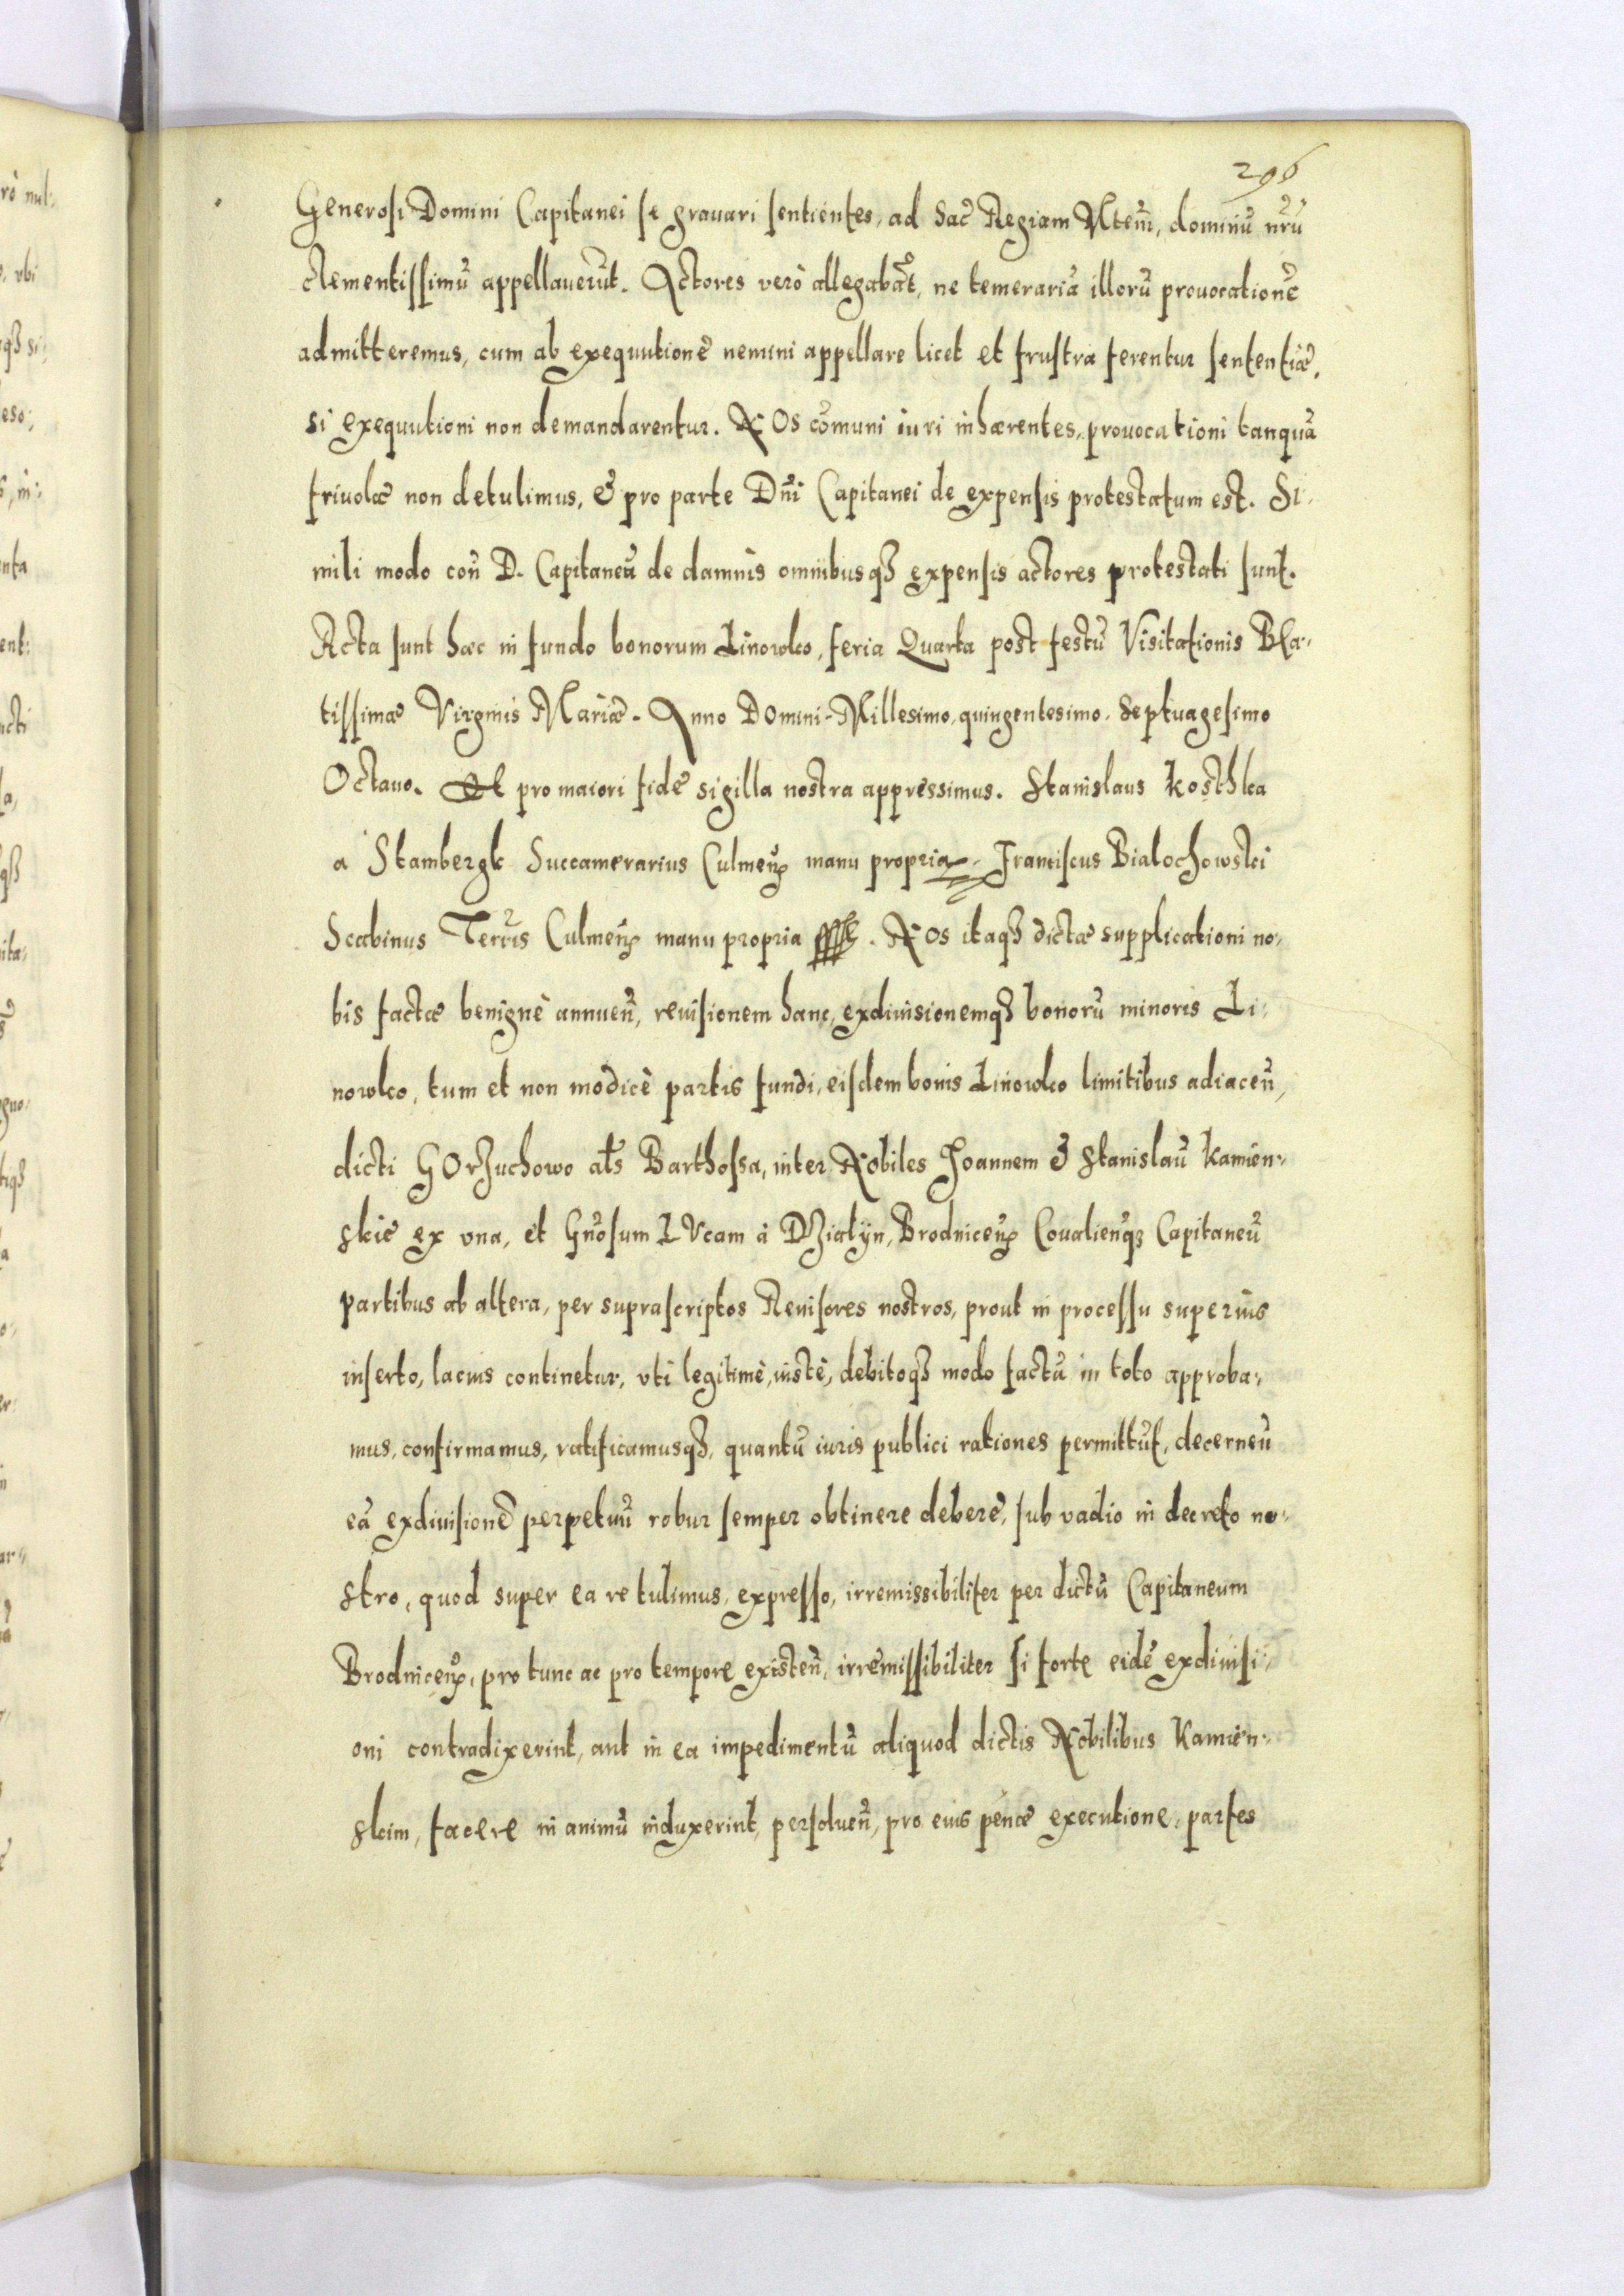 296
Generosi Domini Capitanei se grauari sentientes, ad Sac̃ Regiam Mtem̃, dominũ nr̃ũ
clementissimũ appellauerũt. Actores verò allegabãt, ne temerariã illorũ prouocationẽ
admitteremus, cum ab exequutionẽ nemini appellare licet et frustra ferentur sententiæ,
si exequutioni non demandarentur. NOs cõmuni iuri inhærentes, prouocationi tanquã
friuolæ non detulimus, & pro parte Dñi Capitanei de expensis protestatum est. Si-
mili modo coñ D. Capitaneũ de damnis omnibusqꝫ expensis actores protestati sunt.
Acta sunt hæc in fundo bonorum Linowko, feria Quarta post festũ Visitationis Bea-
tissimæ Virginis Mariæ. Anno Domini Millesimo, quingentesimo, Septuagesimo
Octauo. Et pro maiori fidẽ sigilla nostra appressimus. Stanislaus Kosthka
a Stambergk Succamerarius Culmeñ manu propria. Franciscus Bialochowski
Scabinus Terr̃is Culmeñ manu propria. NOs itaqꝫ dictæ supplicationi no-
bis factæ benignè annueñ, reuisionem hanc, exdiuisionemqꝫ bonorũ minoris Li-
nowko, tum et non modicè partis fundi, eisdem bonis Linowko limitibus adiaceñ,
dicti GOrzuchowo al̃s Barthossa, inter Nobiles Joannem & Stanislaũ Kamien-
skie ex vna, et Gñosum LVcam à Dzialyn, Brodniceñ Coualieñqꝫ Capitaneũ
partibus ab altera, per suprascriptos Reuisores nostros, prout in processu superius
inserto, lacius continetur, vti legitimè, iustè, debitoqꝫ modo factũ in toto approba-
mus, confirmamus, ratificamusqꝫ, quantũ iuris publici rationes permittũt, decerneñ
eã exdiuisionẽ perpetuũ robur semper obtinere deberẽ, sub vadio in decreto no-
stro, quod super ea re tulimus, expresso, irremissibiliter per dictũ Capitaneum
Brodniceñ, pro tunc ac pro tempore existeñ, irremissibiliter si forte eidẽ exdiuisi-
oni contradixerint, aut in ea impedimentũ aliquod dictis Nobilibus Kamien-
skim, facere in animũ induxerint, persolueñ, pro eius penæ executione, partes